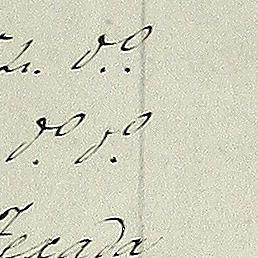 do
do do
Texada